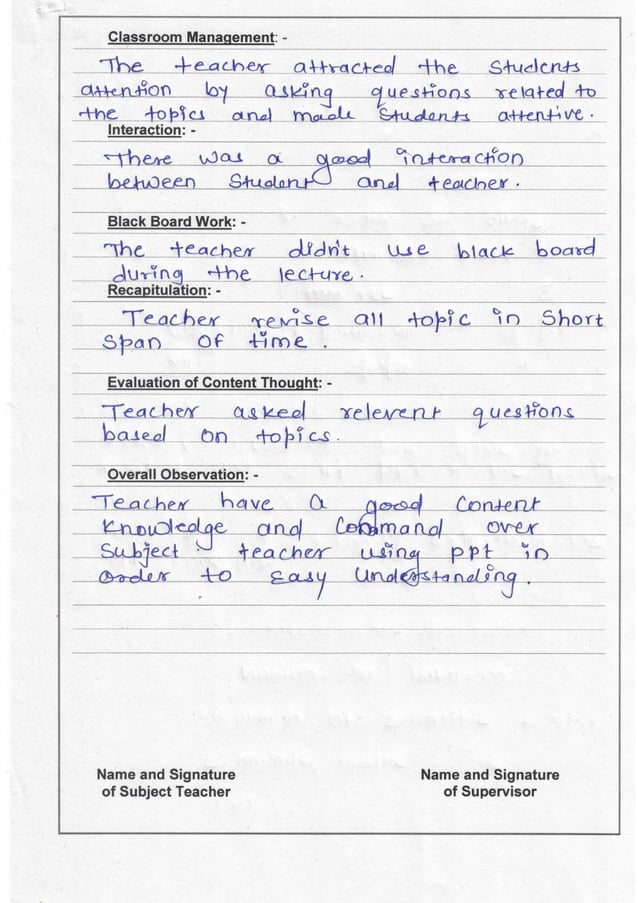 Classroom Management: -
The teacher attracted the students
attention by asking questions related to
the topics and made students attentive.
Interaction: -
There was a good interaction
between Student and teacher.
Black Board Work: -
The teacher didn't use black board
during the lecture.
Recapitulation: -
Teacher revise all topic in Short
Span of time.
Evaluation of Content Thought: -
Teacher asked relevent questions
based on topics.
Overall Observation: -
Teacher have a good content
Knowledge and Command over
Subject teacher using ppt in
order to Easy Understanding.
Name and Signature Name and Signature
of Subject Teacher of Supervisor